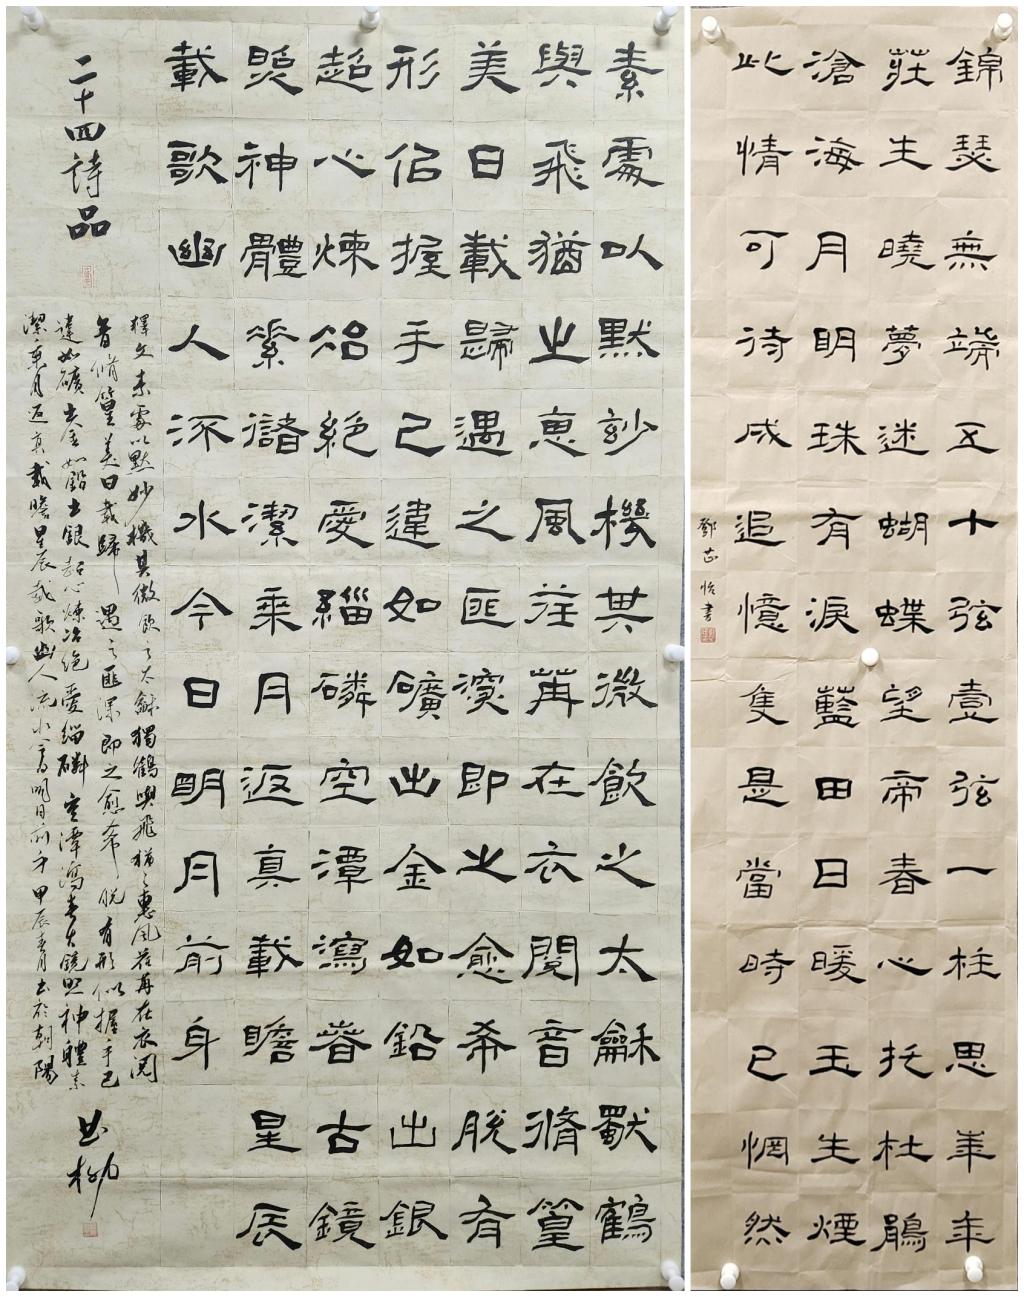 錦瑟無端五十弦壹弦一柱思華年
莊生曉夢迷蝴蝶望帝春心托杜鵑
滄海月明珠有淚藍田日暖玉生煙
此情可待成追憶隻是當時已惘然
鄧芷怡書
素處以默妙機其微飲之太龢獸鶴
與飛猶之惠風荏苒在衣閱音脩篁
美曰載歸遇之匪深即之愈希脫有
形佀握手已違如礦出金如鉛出銀
超心煉冶絕愛緇磷空潭瀉春古鏡
照神體素儲潔乘月返真載瞻星辰
載歌幽人流水今日明月前身
二十四詩品
釋文素處以默妙機其微飲之太龢獨鶴與飛猶之惠風荏苒在衣閱
音脩篁美曰載歸遇之匪深即之愈希脫有形似握手已
違如礦出金如鉛出銀超心煉冶絕愛緇磷空潭瀉春古鏡照神體素
潔乘月返真載瞻星辰載歌幽人流水今日明月前身甲辰春月書於朝陽